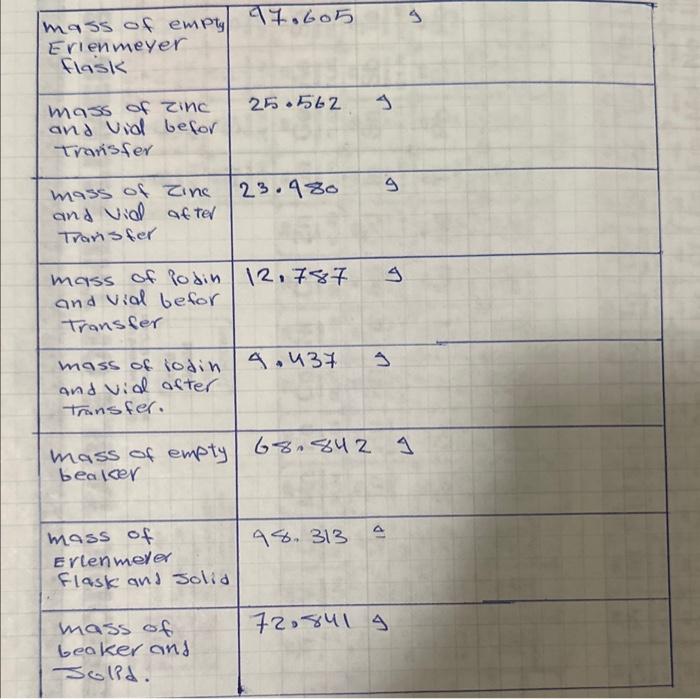 mass of empty 97.605 g
Erlenmeyer
flask
mass of zinc 25.562 g
and vial befor
Transfer
mass of zinc 23.980 g
and vial after
Transfer
mass of Iodin 12.787 g
and vial befor
Transfer
mass of iodin 9.437 g
and vial after
Transfer.
mass of empty 68.842 g
beaker
mass of 98.313 g
Erlenmeyer
flask and solid
mass of 72.841 g
beaker and
Solid.